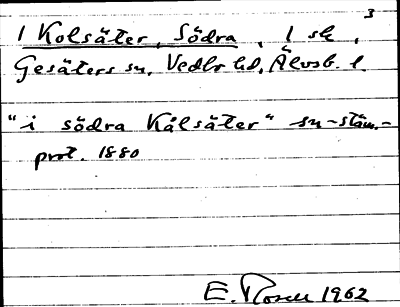 3
1 Kolsäter, Södra, 1 sk,
Gesäters sn, Vedbo hd, Älvsb. l.
"i södra Kålsäter" sn-stäm.-
prot. 1880
E. Rosell 1962